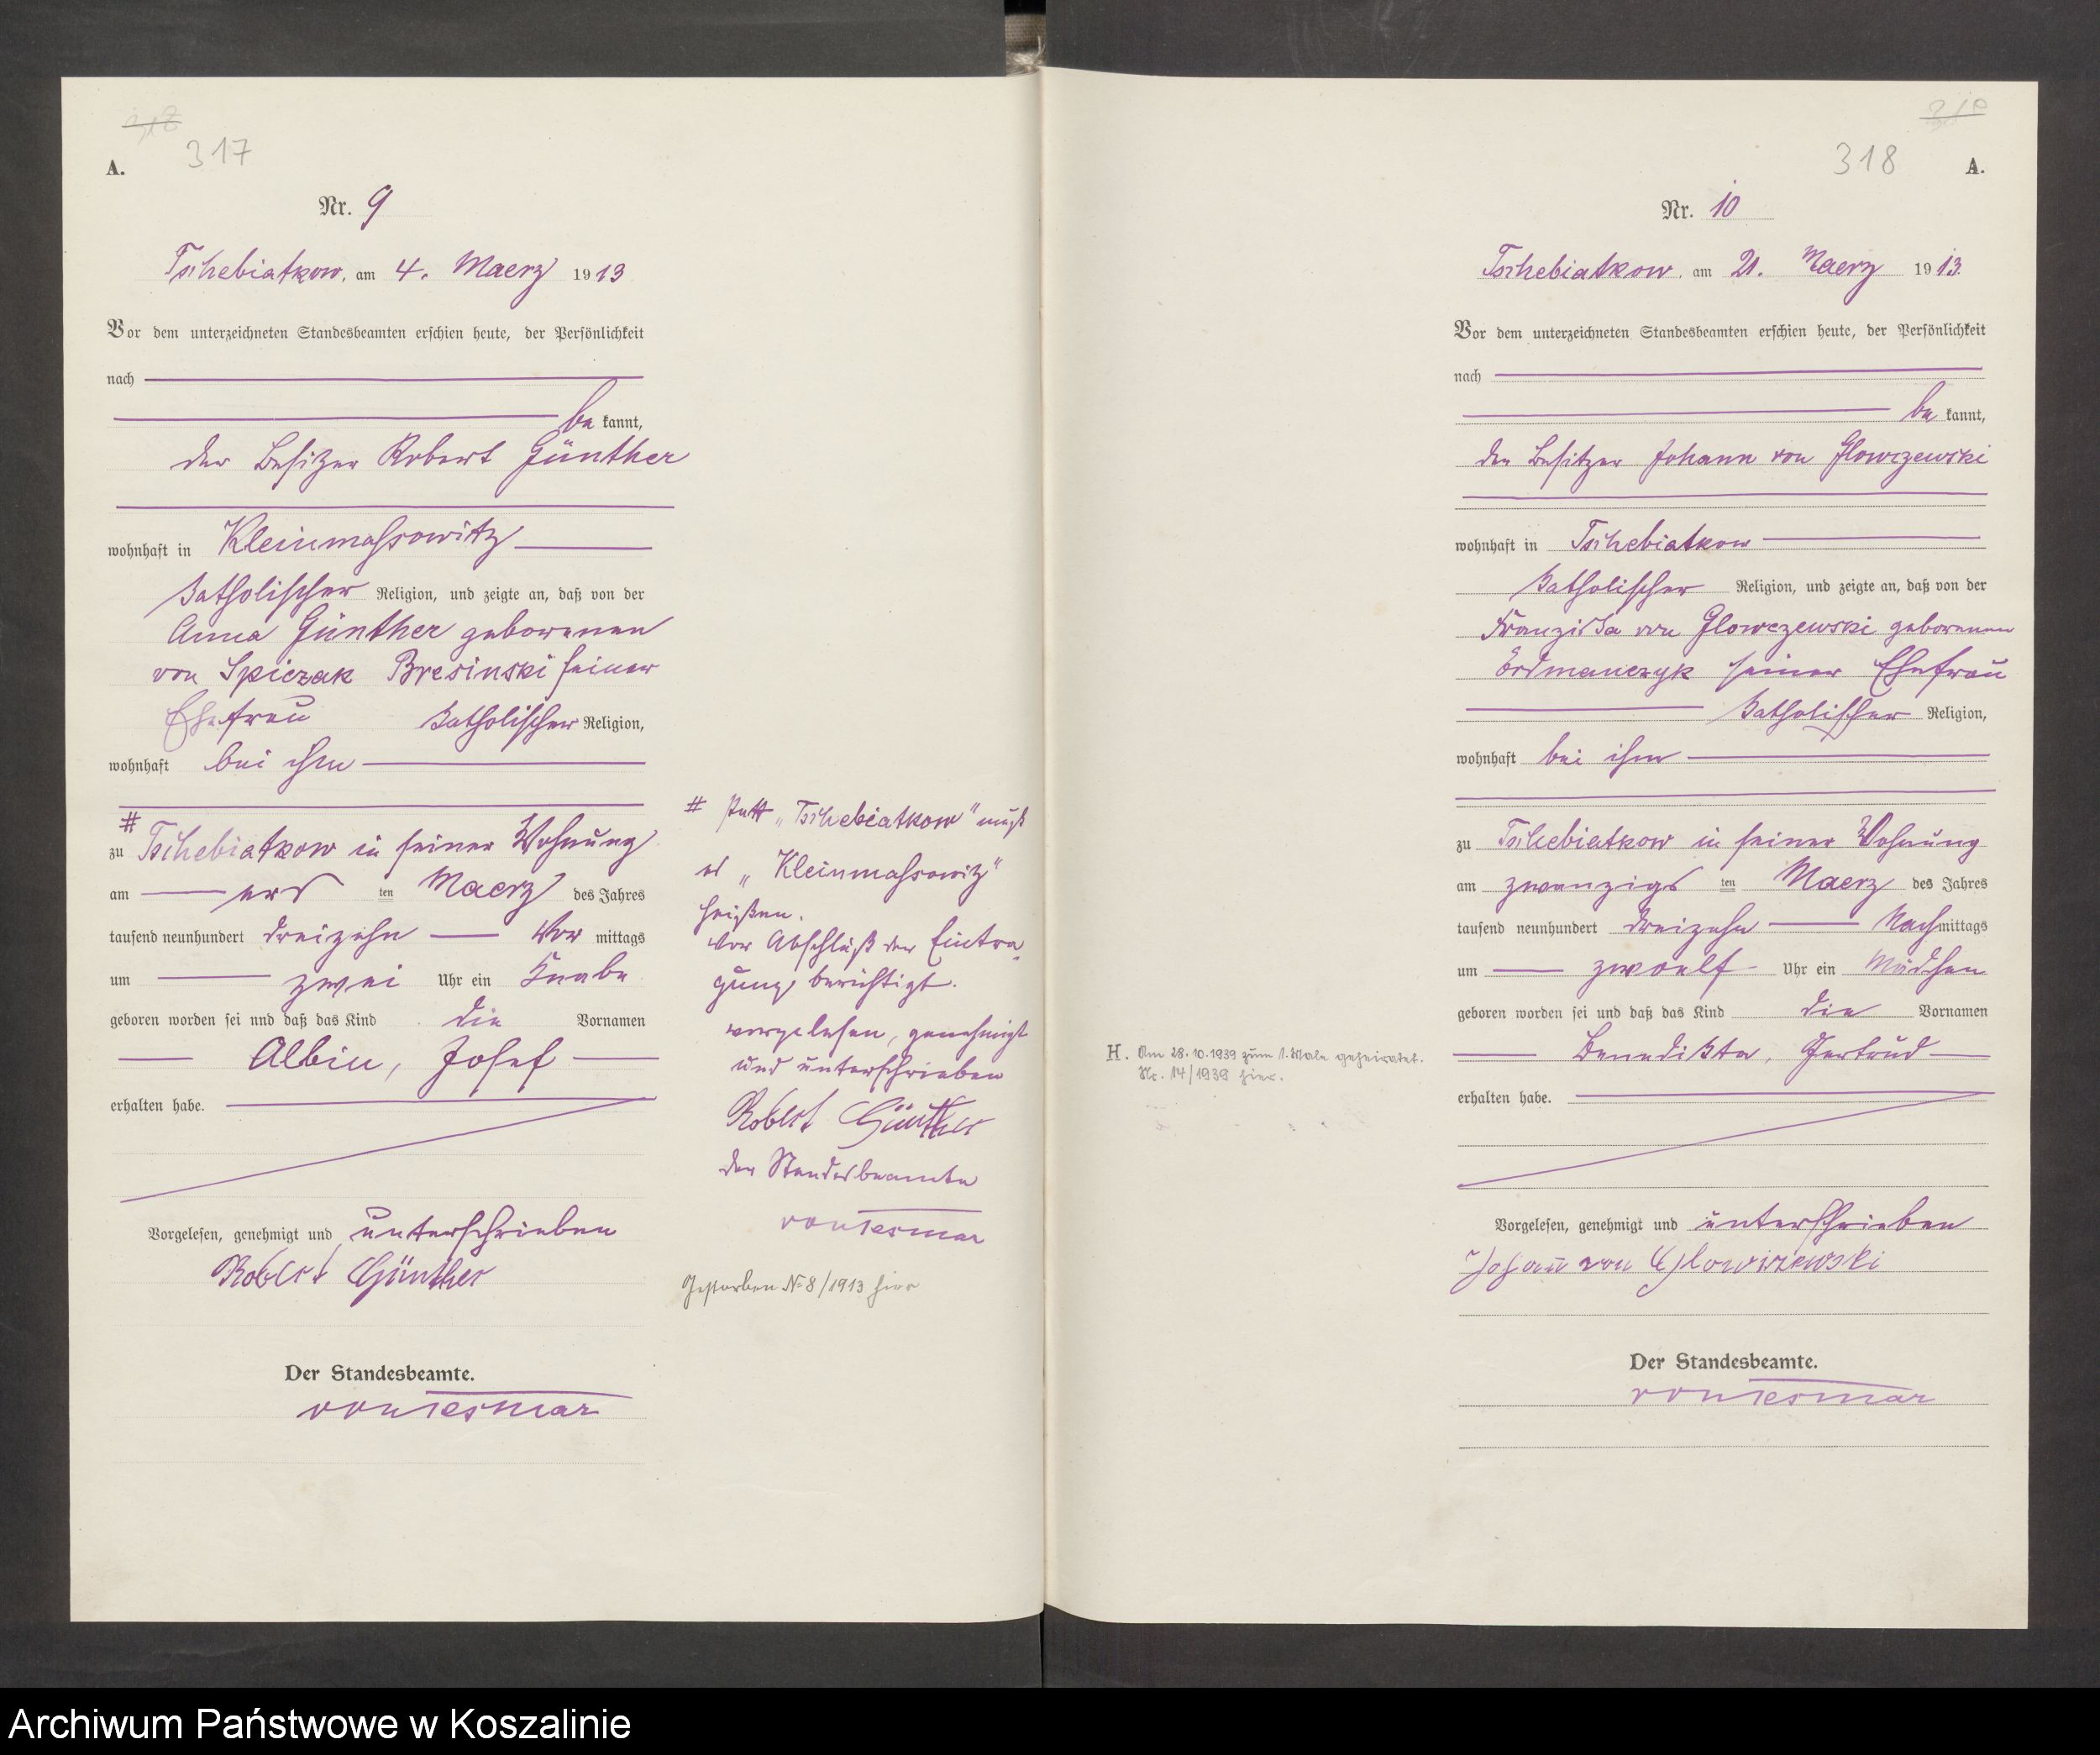 A.
317
Nr. 9
Tschebiatkow, am 4. Maerz 1913
Vor dem unterzeichneten Standesbeamten erschien heute, der Persönlichkeit
nach
be kannt,
der Besitzer Robert Günther
wohnhaft in Kleinmassowitz
katholischer Religion, und zeigte an, daß von der
Anna Günther geborenen
von Spiczak Bresinski seiner
Ehefrau katholischer Religion,
wohnhaft bei ihm
#
zu Tschebiatkow in seiner Wohnung
am ers ten Maerz des Jahres
tausend neunhundert dreizehn Vor mittags
um zwei Uhr ein Knabe
geboren worden sei und daß das Kind die Vornamen
Albin, Josef
erhalten habe.
Vorgelesen, genehmigt und unterschrieben
Robert Günther
Der Standesbeamte.
von Tesmar
# statt „Tschebiatkow" muß
es „Kleinmassowitz"
heißen.
Vor Abschluß der Eintra-
gung berichtigt.
vorgelesen, genehmigt
und unterschrieben
Robert Günther
der Standesbeamte
von Tesmar
Gestorben No 8/1913 hier
318
A.
Nr. 10
Tschebiatkow, am 21. Maerz 1913.
Vor dem unterzeichneten Standesbeamten erschien heute, der Persönlichkeit
nach
be kannt,
der Besitzer Johann von Glowczewski
wohnhaft in Tschebiatkow
katholischer Religion, und zeigte an, daß von der
Franziska von Glowczewski geborenen
Erdmanczyk seiner Ehefrau
katholischer Religion,
wohnhaft bei ihm
zu Tschebiatkow in seiner Wohnung
am zwanzigs ten Maerz des Jahres
tausend neunhundert dreizehn Nach mittags
um zwoelf Uhr ein Mädchen
geboren worden sei und daß das Kind die Vornamen
Benedikta, Gertrud
erhalten habe.
H. Am 28.10.1939 zum 1. Male geheiratet.
Nr. 14/1939 hier.
Vorgelesen, genehmigt und unterschrieben
Johann von Glowczewski
Der Standesbeamte.
von Tesmar
Archiwum Państwowe w Koszalinie